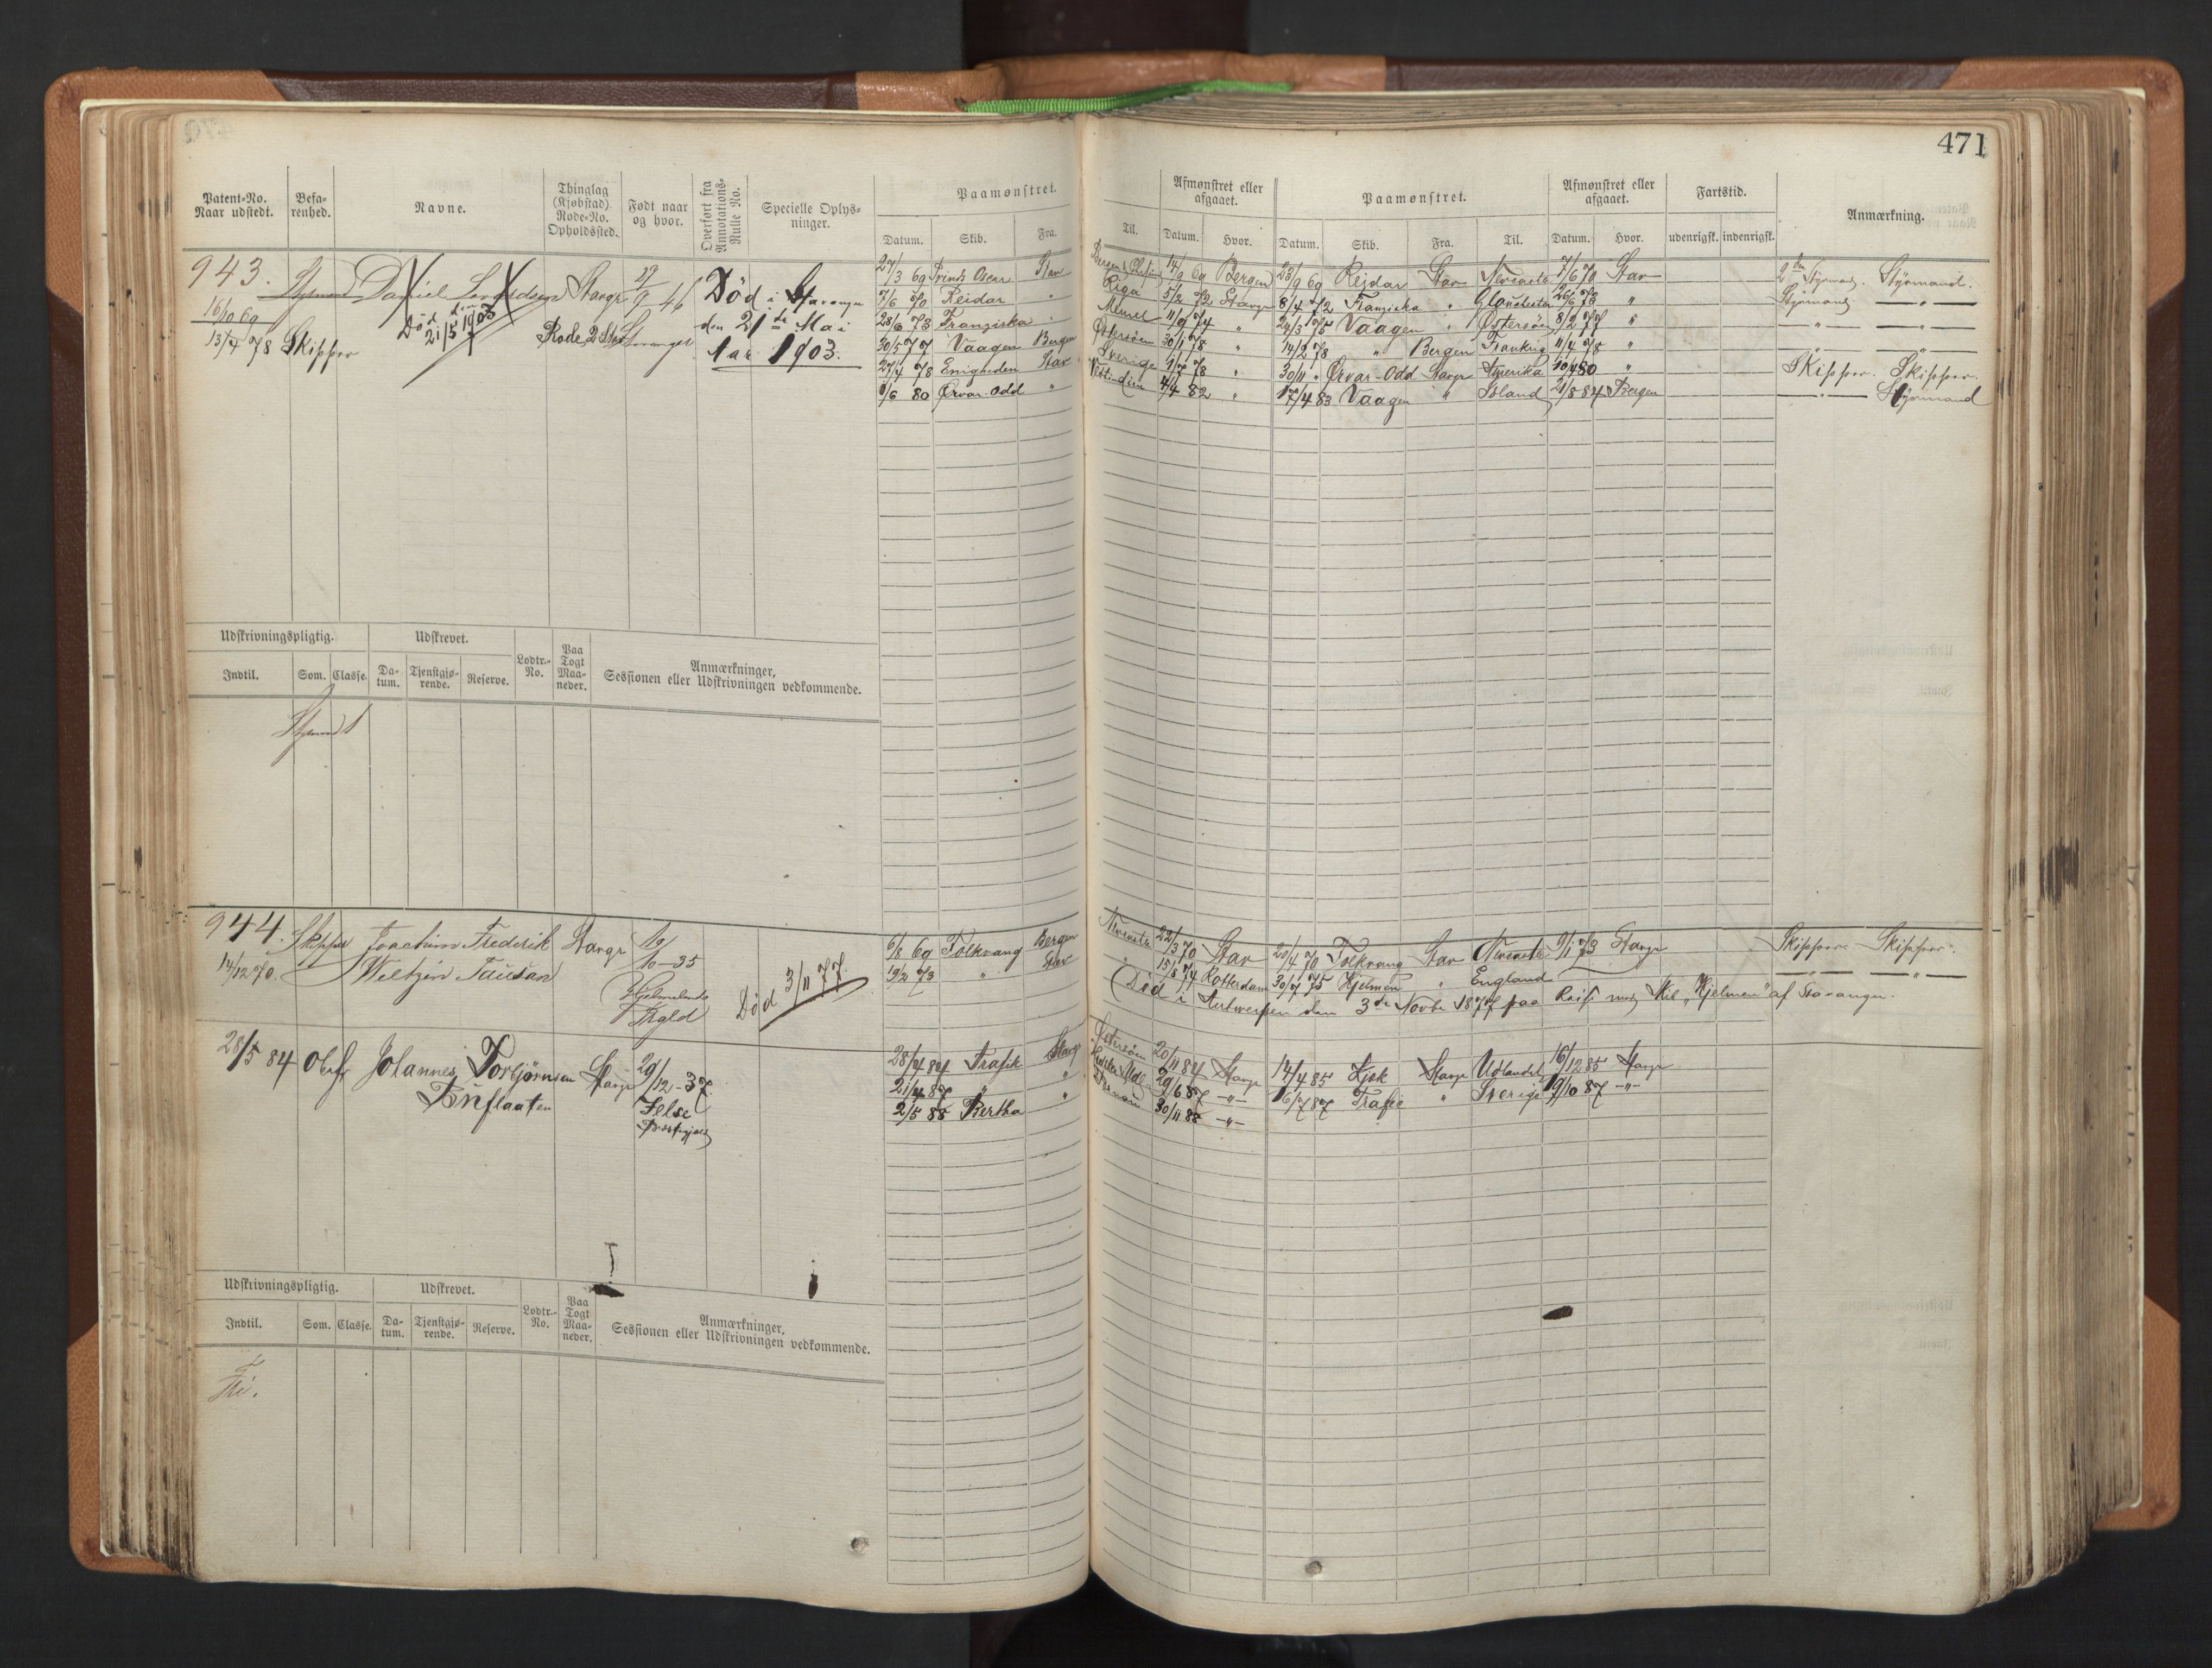 471
Patent-No. Naar udstedt.
Befa-renhed.
Navne.
Thinglag (Kjøbstad) Rode-No. Opholdssted.
Født naar og hvor.
Overført fra Annotations-Rulle No.
Specielle Oplys-ninger.
Paamønstret.
Datum. Skib. Fra. Til.
Afmønstret eller afgaaet.
Datum. Hvor.
Paamønstret.
Datum. Skib. Fra. Til.
Afmønstret eller afgaaet.
Datum. Hvor.
Fartstid.
udenrigsk. indenrigsk.
Anmærkning.
943.
16/10 69
13/4 78 Skipper
Daniel
Død den 21/5 1903
Stavgr
Rode 2 Stavanger
29/9 46
Død i Stavanger
den 21de Mai
Aar 1903.
27/3 69 Prinds Oscar Stav 14/9 69 Bergen 23/9 69 Rejdar Stav Newcastle 7/6 70 Stav 2den Styrmand. Styrmand.
7/6 70 Reidar " Riga 5/2 72 Stavgr 8/4 72 Franziska " 26/6 73 " Styrmand — " —
28/6 73 Franziska " Memel 11/9 74 " 24/3 75 Vaagen " Østersøen 8/2 77 " — " — — " —
30/5 77 Vaagen Bergen Østersøen 30/1 78 " 14/2 78 " Bergen Frankrig 11/4 78 " — " — — " —
27/4 78 Enigheden Stav Sverige 9/7 78 " 30/11 " Ørvar-Odd Stavgr Amerika 10/4 80 " Skipper. Skipper.
1/6 80 Ørvar-Odd " Vestindien 4/4 82 " 17/4 83 Vaagen " Island 21/8 84 Bergen — " — Styrmand
Udskrivningspligtig.
Indtil. Som. Classe.
Udskrevet.
Da-tum. Tjenstgjø-rende. Reserve.
Lodtr.-No.
Paa Togt Maa-neder.
Anmærkninger,
Sessionen eller Udskrivningen vedkommende.
944. Skipper Joachim Frederik Stavgr 10/10-35
14/12 70. Weltzin Tausan
Hjelmelands Prgld
Død 3/11 77.
6/8 69 Folkvang Bergen Newcastle 22/3 70 Stav 20/4 70 Folkvang Stav Newcastle 9/1 73 Stavgr Skipper Skipper.
19/2 73 " Stav " 15/8 74 Rotterdam 30/7 75 Hjelmen " England — " — — " —
(Død i Antwerpen den 3de Novbr 1877 paa Reise med Skib "Hjelmen" af Stavanger.
28/5 84 Johannes Torbjørnsen Stavgr 29/12-37.
Tuflaaten
Jelse
Præstegjeld
28/4 84 Trafik Stavgr Østersøen 20/11 84 Stavgr 14/4 85 Stavgr Udlandet 16/12 85 Stavgr
21/4 87 " " 29/6 87 -"- 16/7 87 Trafic " Sverige 19/10 87 -"-
2/5 88 Bertha " 30/11 88 -"-
Udskrivningspligtig.
Indtil. Som. Classe.
Udskrevet.
Da-tum. Tjenstgjø-rende. Reserve.
Lodtr.-No.
Paa Togt Maa-neder.
Anmærkninger,
Sessionen eller Udskrivningen vedkommende.